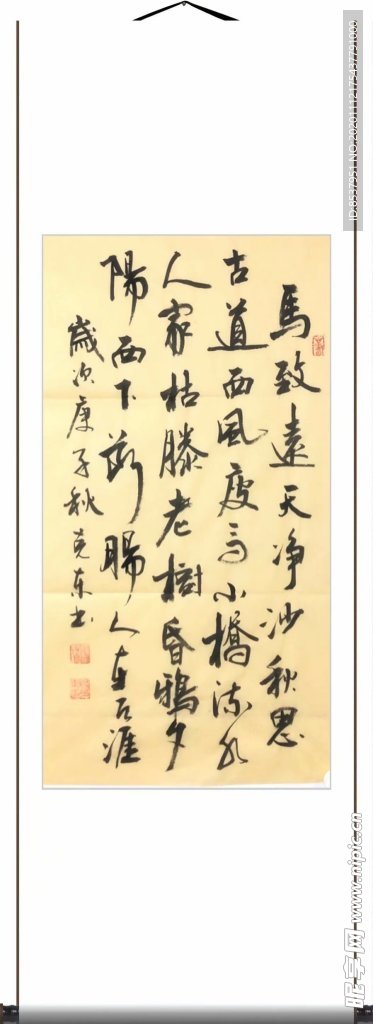 馬致遠天净沙秋思
古道西風瘦馬小橋流水
人家枯滕老樹昏鴉夕
陽西下斷腸人在天涯
歲次庚子秋克东书
ID:8537951 NO:20201112175437791000
昵图网 www.nipic.cn